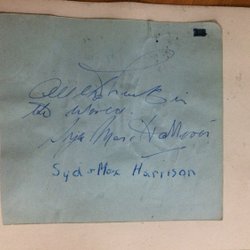 All the Thanks in
the World.
Syd & Max Harrison
Syd & Max Harrison